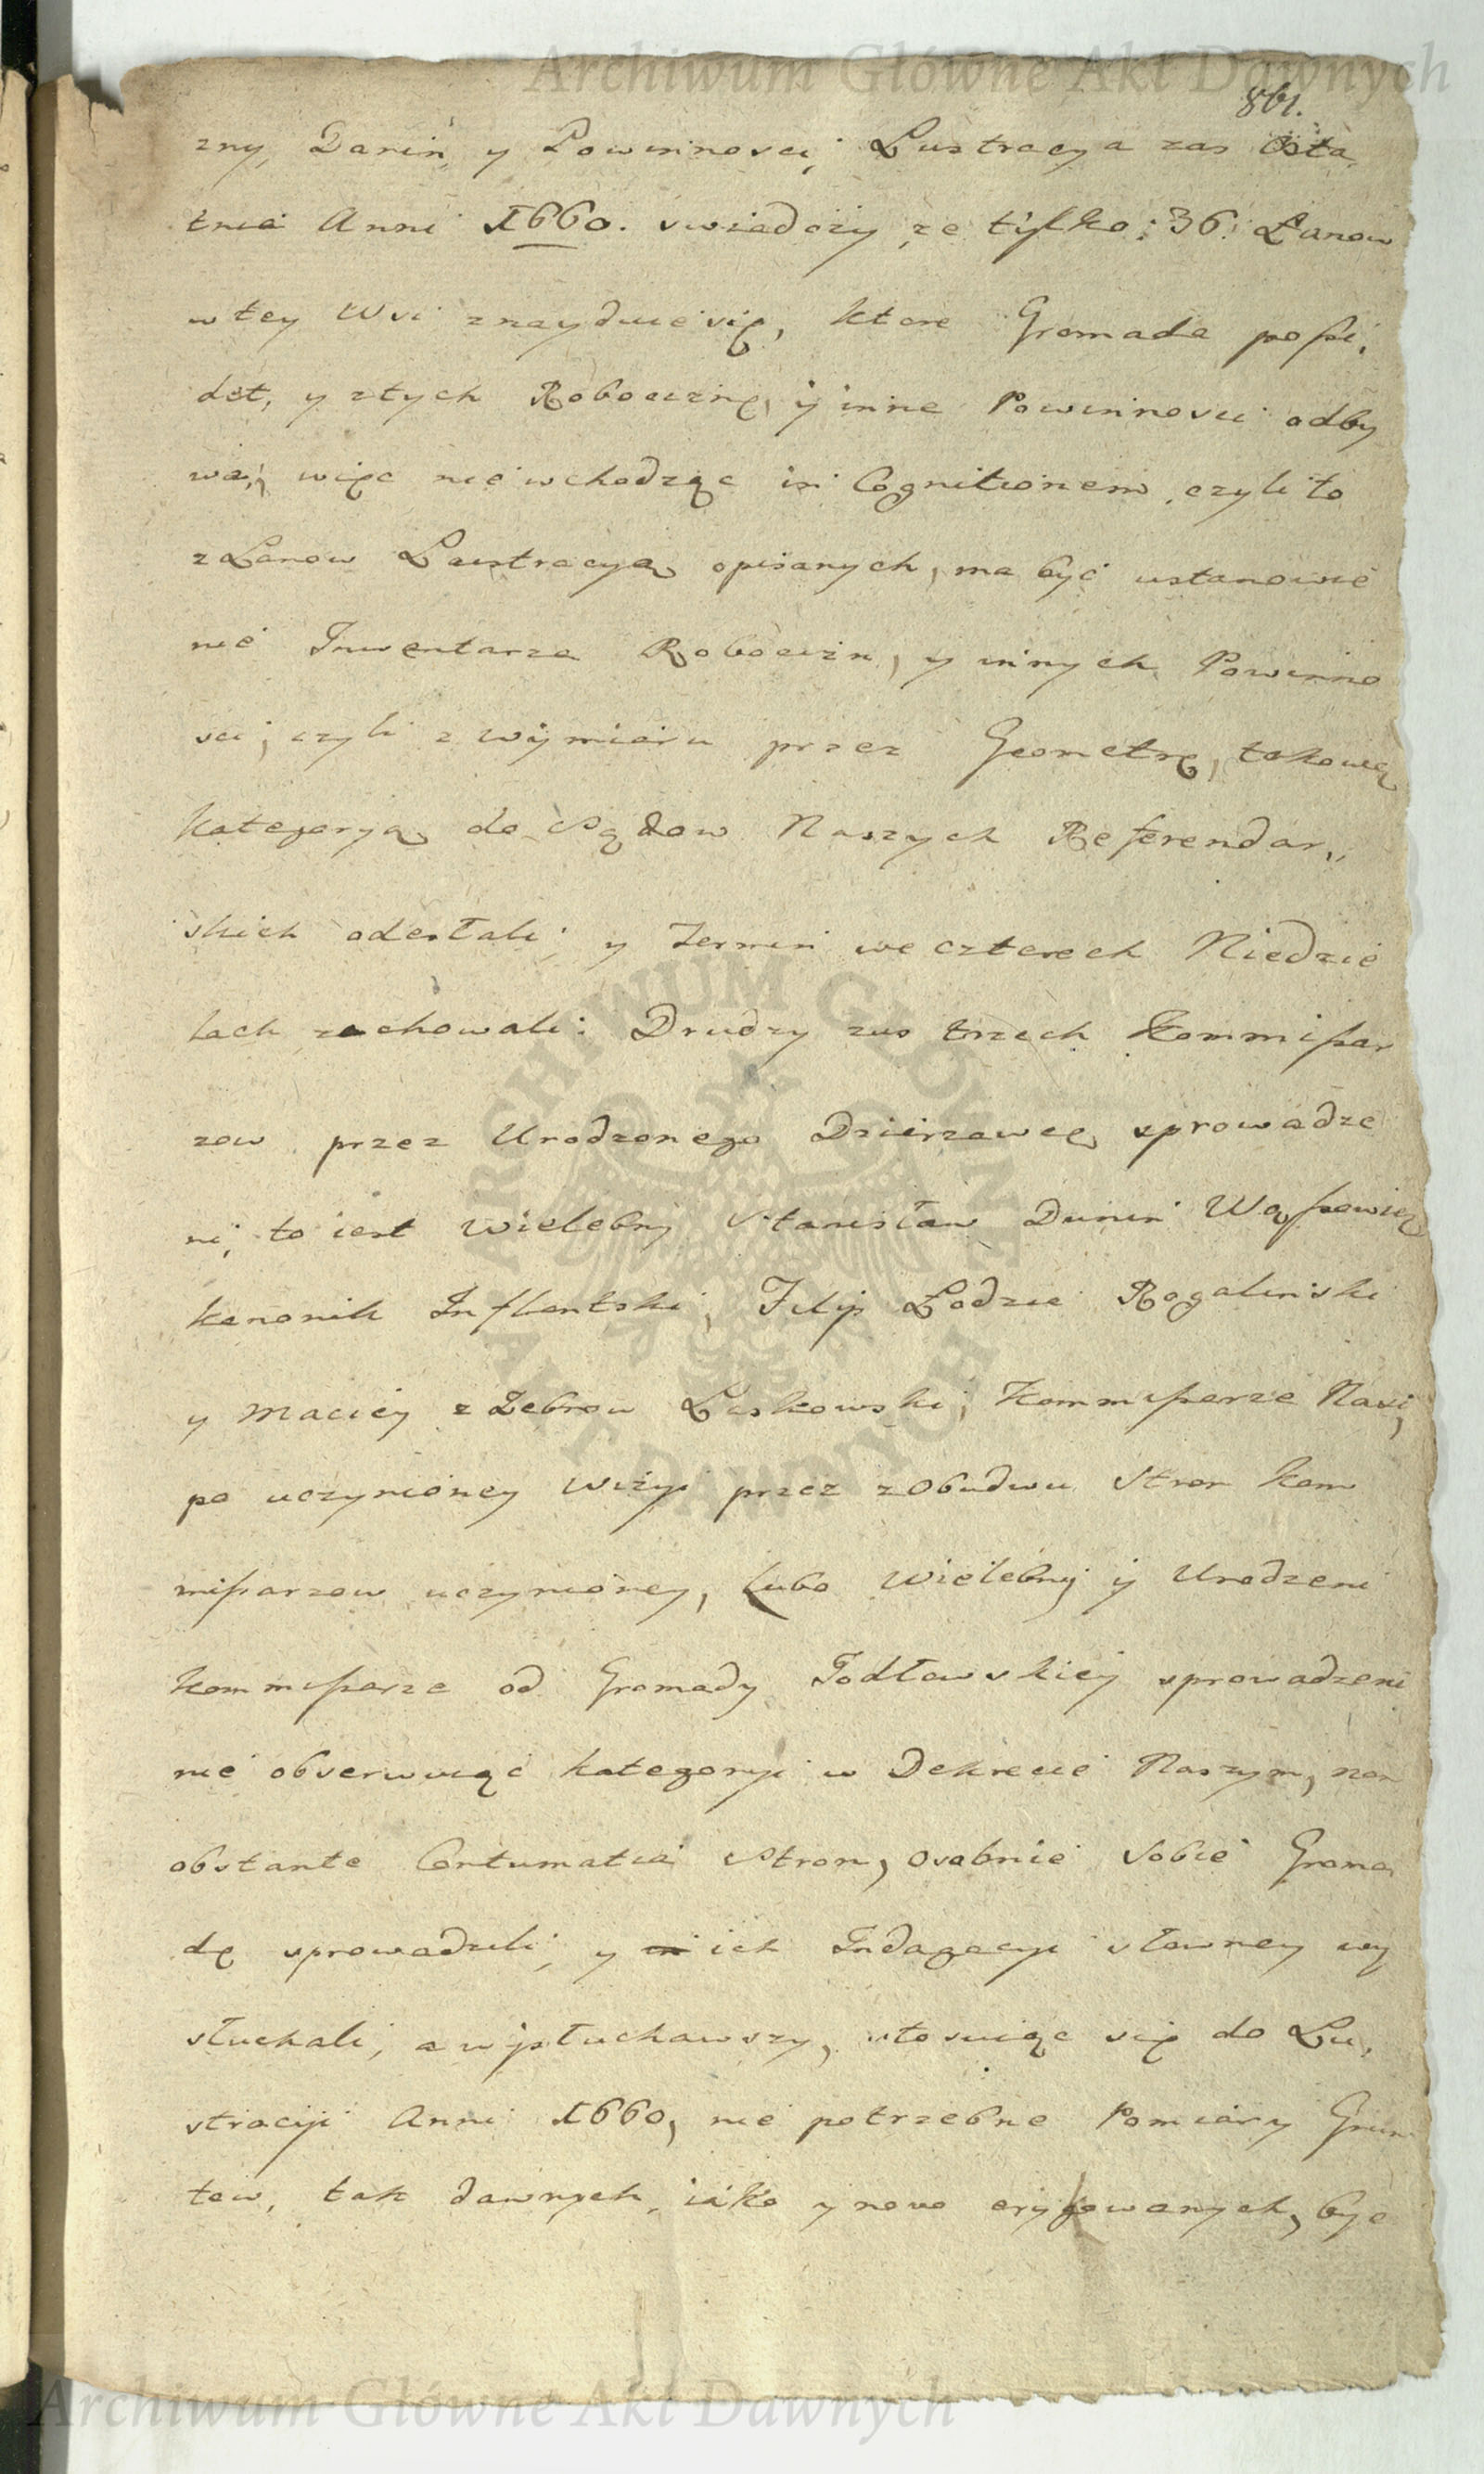 Archiwum Główne Akt Dawnych
861.
zny, Danin, y Powinnosci, Lustracya zas Osta
tnia Anni 1660. swiadczy, ze tylko: 36: Łanow
w tey Wsi znayduie się, ktore Gromada possi,
det, y ztych Robociznę, y inne Powinnosci odby
wa; więc nie wchodząc in Cognitionem, czyli to
z Łanow Lustracyą opisanych, ma być ustanowie
nie Inwentarza Robocizn, y innych Powinno
sci, czyli z wymiaru przez Geometrę, takową
kategoryą do Sądow Naszych Referendar,,
skich odesłali, y Termin we czterech Niedzie
lach zachowali: Drudzy zas trzech Kommissar
zow przez Urodzonego Dzierzawcę sprowadze
ni, to iest Wielebny Stanisław Dunin Wąsowicz
kanonik Inflantski, Filip Łodzia Rogalinski
y Maciey z Zebrow Laskowski, Kommissarze Nasi,
po uczynioney wizyi przez z Obudwu Stron Kom
missarzow uczynioney, lubo Wielebny y Urodzeni
Kommissarze od Gromady Todławskiey sprowadzeni
nie obserwuiąc kategoryi w Dekrecie Naszym, non
obstante Contumatia Stron, osobnie sobie Groma,
dę sprowadzili, y ich Indagacyi słowney wy
słuchali, a wysłuchawszy, stosuiąc się do Lu,
stracyi Anni 1660, nie potrzebne Pomiary Grun
tow, tak dawnych, iako y novo erygowanych, byc
ARCHIWUM GŁÓWNE AKT DAWNYCH
Archiwum Główne Akt Dawnych